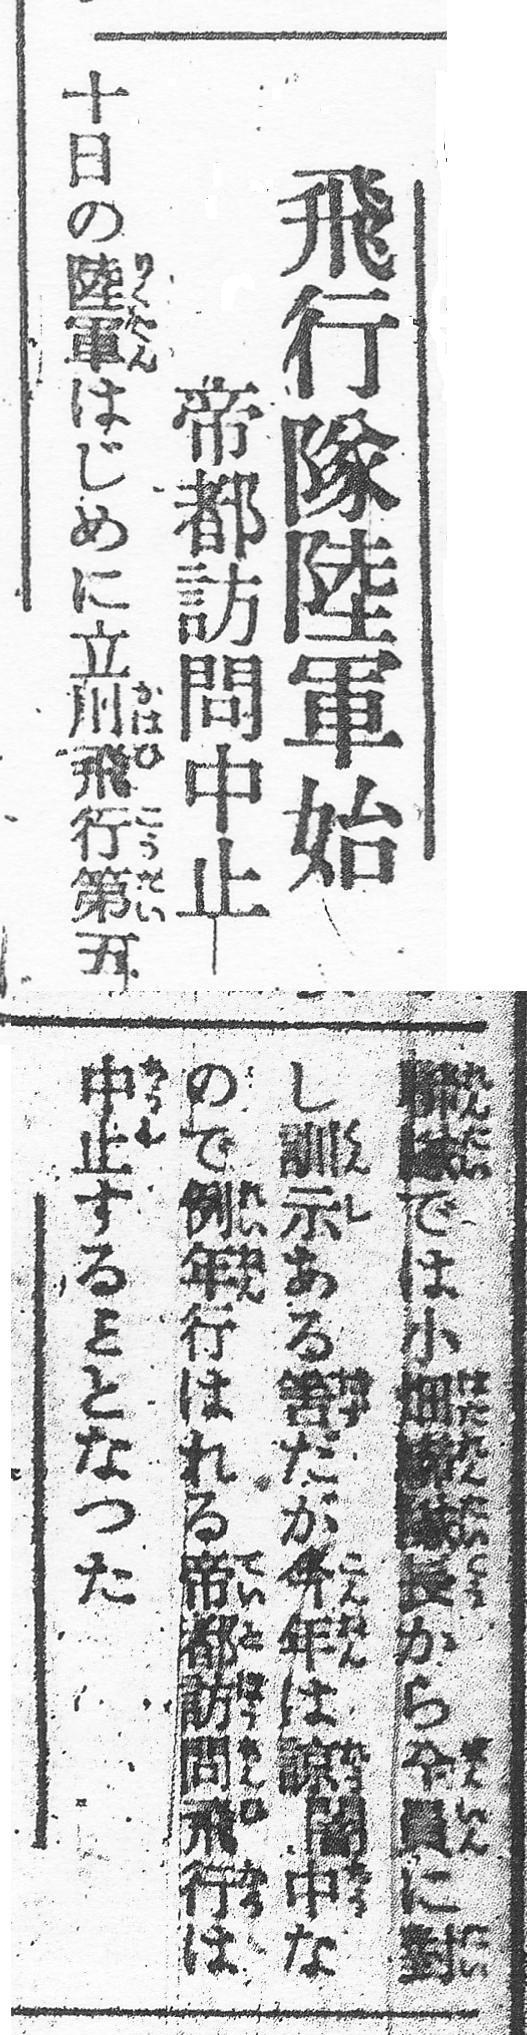 飛行隊陸軍始
帝都訪問中止
十日の陸軍はじめに立川飛行第五
聯隊では小畑聯隊長から全員に對
し訓示ある筈だが今年は諒闇中な
ので例年行はれる帝都訪問飛行は
中止することとなつた